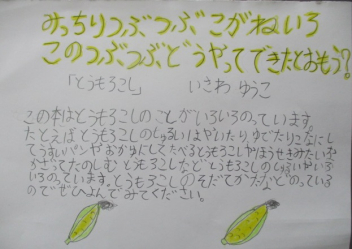 みっちりつぶつぶこがねいろ
このつぶつぶどうやってできたとおもう?
「とうもろこし」 いさわ ゆうこ
この本はとうもろこしのことがいろいろのっています。
たとえばとうもろこしのしゅるいはやいたり、ゆでたりこなにし
てうすいパンやおかゆにしてたべるとうもろこしやほうせきみたいな
かざってたのしむとうもろこしなどとうもろこしのしゅるいがいろ
いろのています。とうもろこしのそだてかたなどのっている
のでぜひよんでみてください。